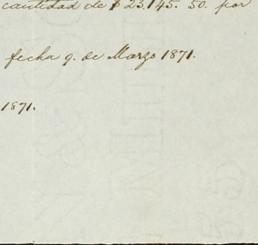 cantidad de $ 23.145. 50. por
fecha 9. de Marzo 1871.
1871.